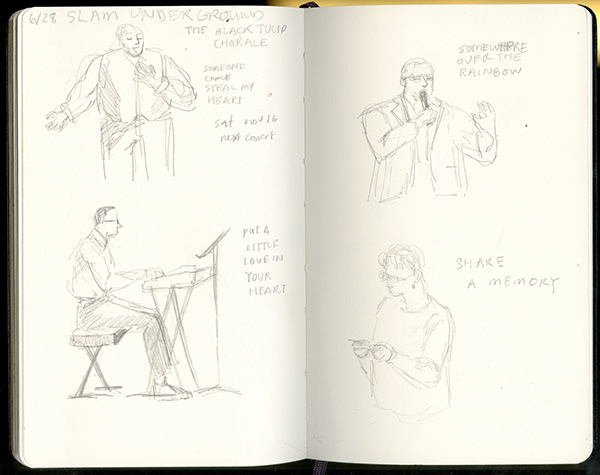 6/28 SLAM UNDERGROUND
THE BLACK TULIP
CHORALE
SOMEONE
COME
STEAL MY
HEART
Sat nov 16
next concert
PUT A
LITTLE
LOVE IN
YOUR
HEART
SOMEWHERE
OVER THE
RAINBOW
SHARE
A MEMORY